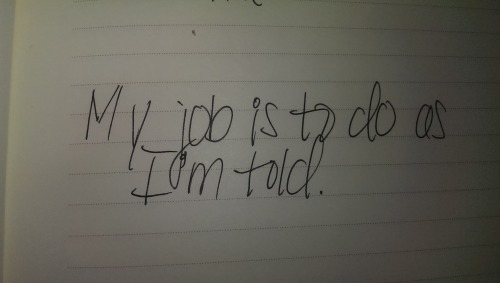 My job is to do as
I'm told.